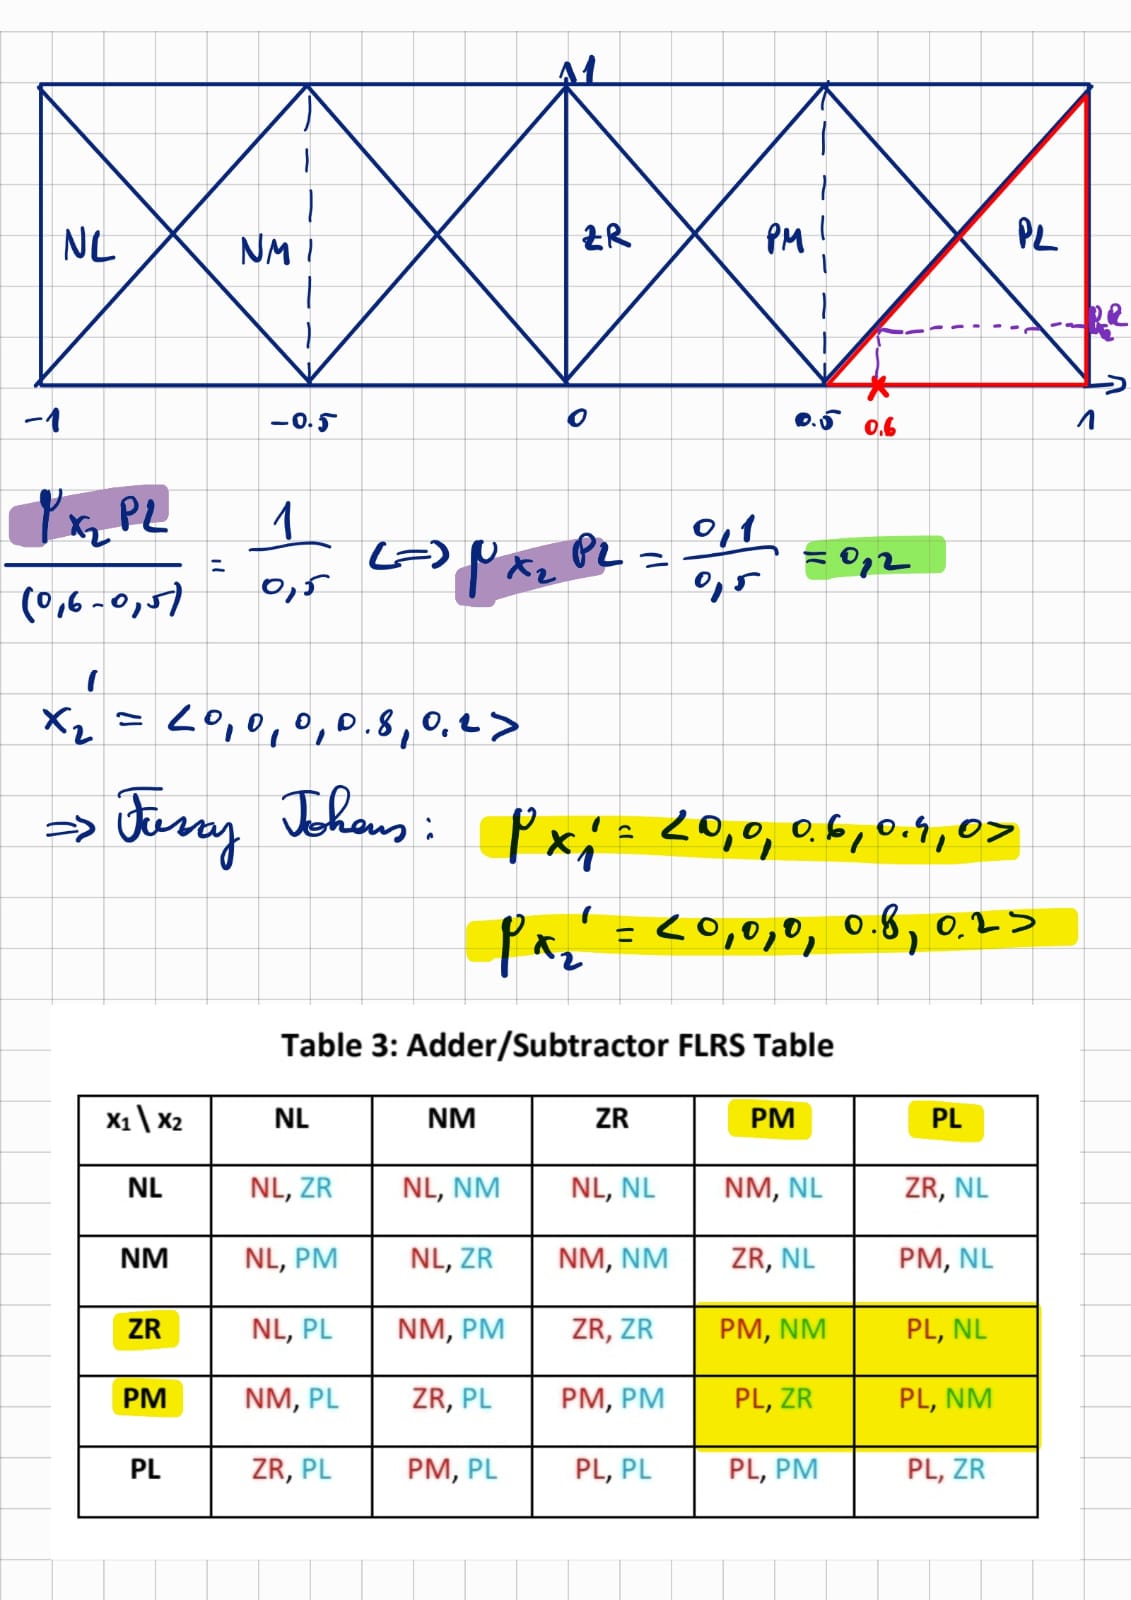 1
NL NM ZR PM PL
-1 -0.5 0 0.5 0.6 1
μx₂ PL / (0,6-0,5) = 1 / 0,5 <=> μx₂ PL = 0,1 / 0,5 = 0,2
x₂' = <0, 0, 0, 0.8, 0.2>
=> Fuzzy Tokens: μx₁' = <0, 0, 0.6, 0.4, 0>
μx₂' = <0, 0, 0, 0.8, 0.2>
Table 3: Adder/Subtractor FLRS Table
x₁ \ x₂ NL NM ZR PM PL
NL NL, ZR NL, NM NL, NL NM, NL ZR, NL
NM NL, PM NL, ZR NM, NM ZR, NL PM, NL
ZR NL, PL NM, PM ZR, ZR PM, NM PL, NL
PM NM, PL ZR, PL PM, PM PL, ZR PL, NM
PL ZR, PL PM, PL PL, PL PL, PM PL, ZR